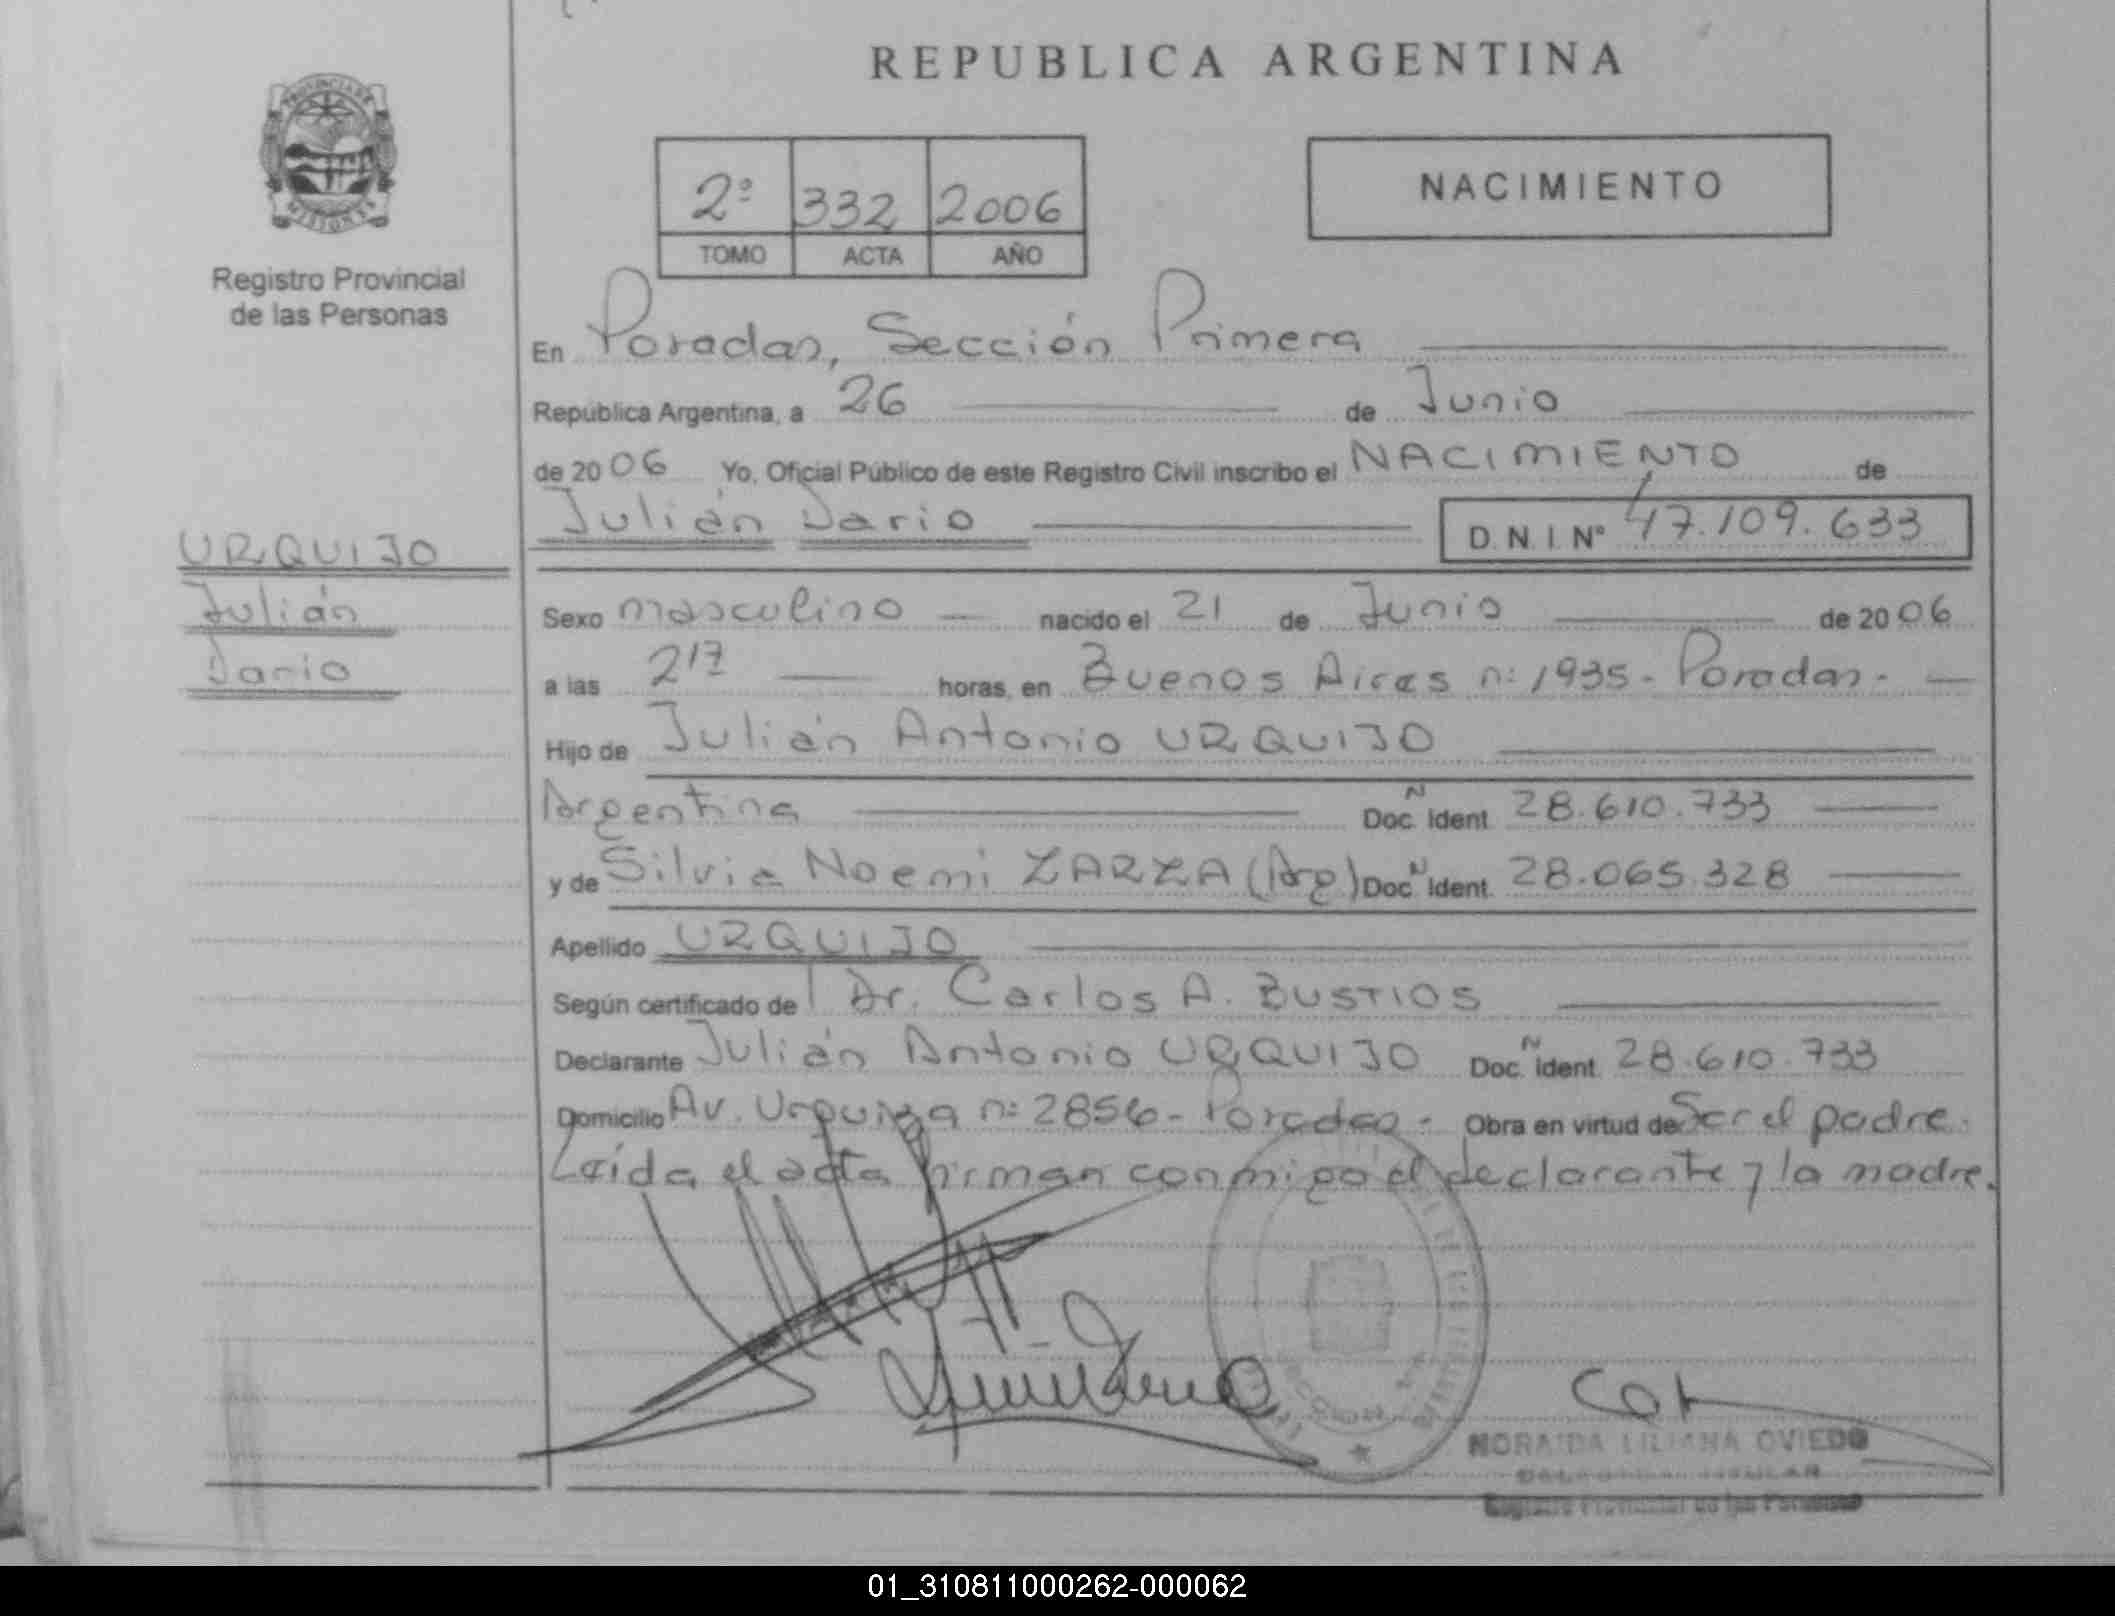 REPUBLICA ARGENTINA
PROVINCIA DE
MISIONES
Registro Provincial
de las Personas
2º 332 2006
TOMO ACTA AÑO
NACIMIENTO
En Posadas, Sección Primera
República Argentina, a 26 de Junio
de 2006 Yo, Oficial Público de este Registro Civil inscribo el NACIMIENTO de
Julián Dario D.N.I. Nº 47.109.633
URQUIJO
Julián
Dario
Sexo masculino nacido el 21 de Junio de 2006
a las 2¹⁷ horas, en Buenos Aires nº 1935 - Posadas -
Hijo de Julián Antonio URQUIJO
Argentina Doc. Ident. 28.610.733
y de Silvia Noemi ZARZA (Arg) Doc. Ident. 28.065.328
Apellido URQUIJO
Según certificado de Dr. Carlos A. BUSTIOS
Declarante Julián Antonio URQUIJO Doc. Ident. 28.610.733
Domicilio Av. Urquiza nº 2856 - Posadas - Obra en virtud de Ser el padre.
Leída el acta firman conmigo el declarante y la madre.
NORAIDA LILIANA OVIEDO
Registro Provincial de las Personas
01_310811000262-000062